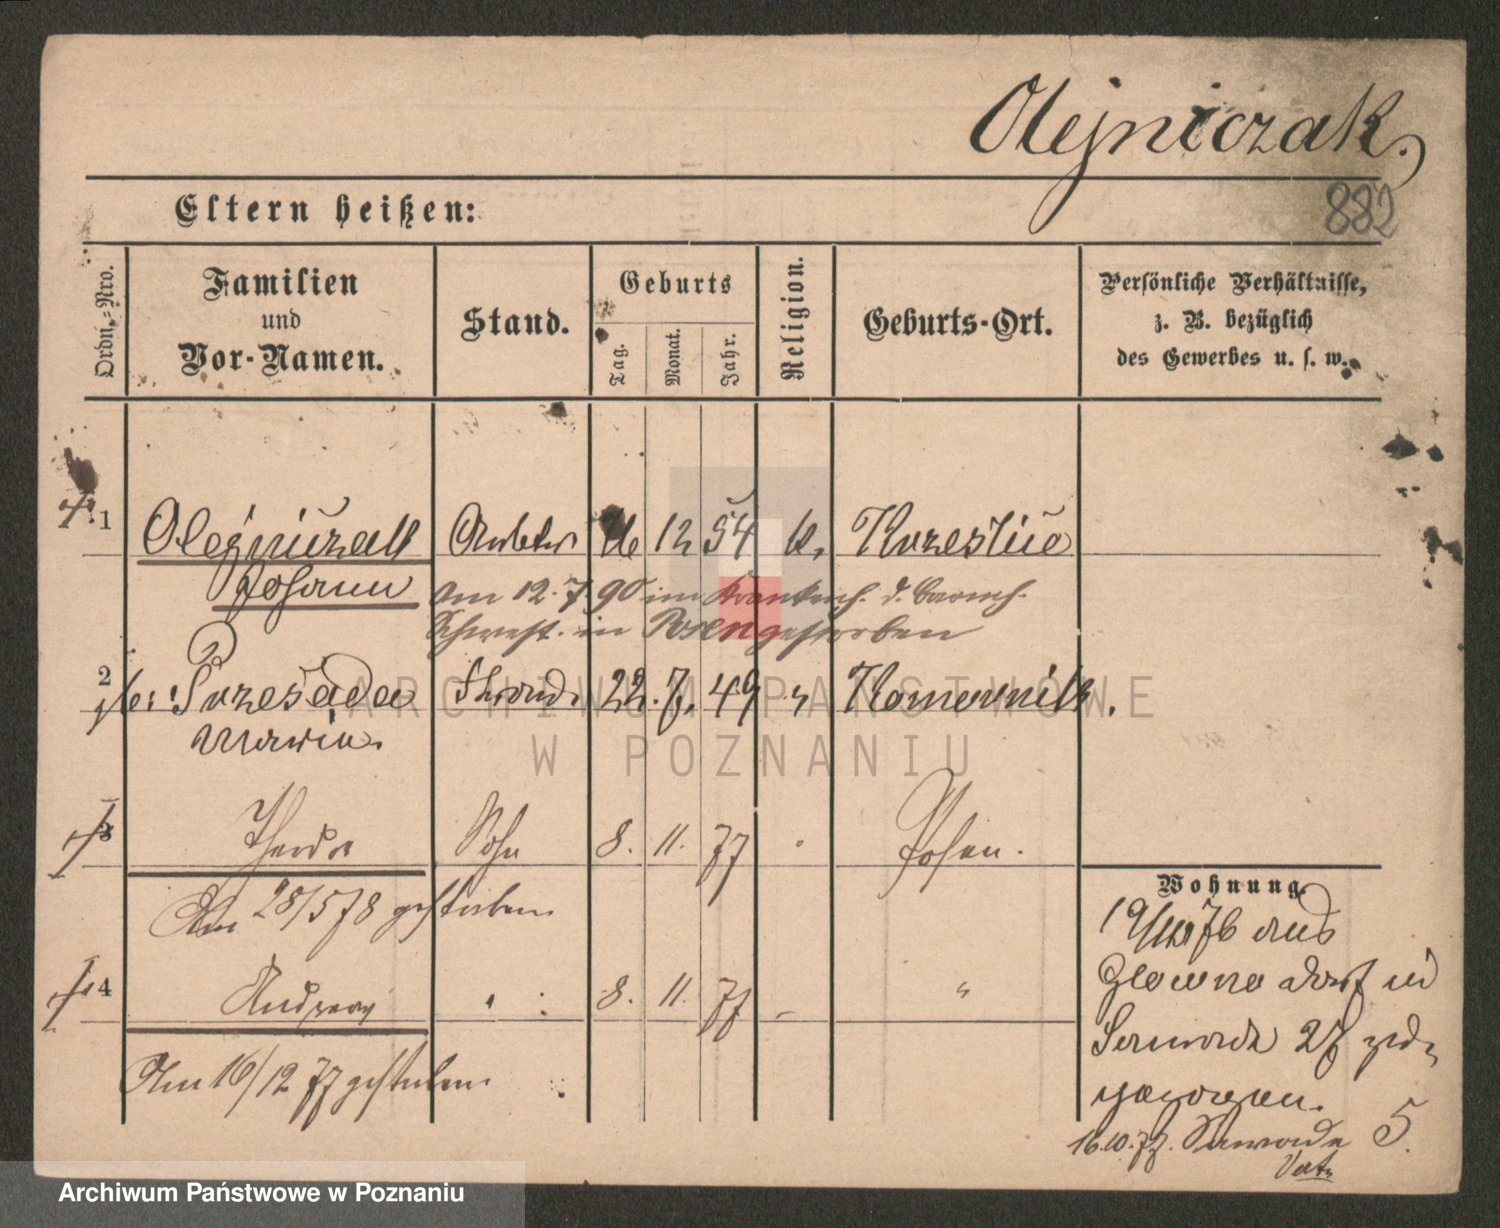 Olejniczak.
882
Eltern heißen:
Ordn.=Nro.
Familien
und
Vor-Namen.
Stand.
Geburts
Tag.
Monat.
Jahr.
Religion.
Geburts-Ort.
Persönliche Verhältnisse,
z. B. bezüglich
des Gewerbes u. s. w.
1 Olejniczak 12 54
Johann
am 12. 7. 90 im Krankenh. d. barmh.
Schwest. in Posen gestorben
2 22. 7. 49
Maria
ARCHIWUM PAŃSTWOWE
W POZNANIU
3 Theodor Sohn 8. 11. 77 Posen.
Am 28/5 78 gestorben
4 Andreas 8. 11. 77
Am 16/12 77 gestorben
Wohnung.
76 aus
Glowno Dorf
27
zugezogen.
16.10.77. 5.
Archiwum Państwowe w Poznaniu